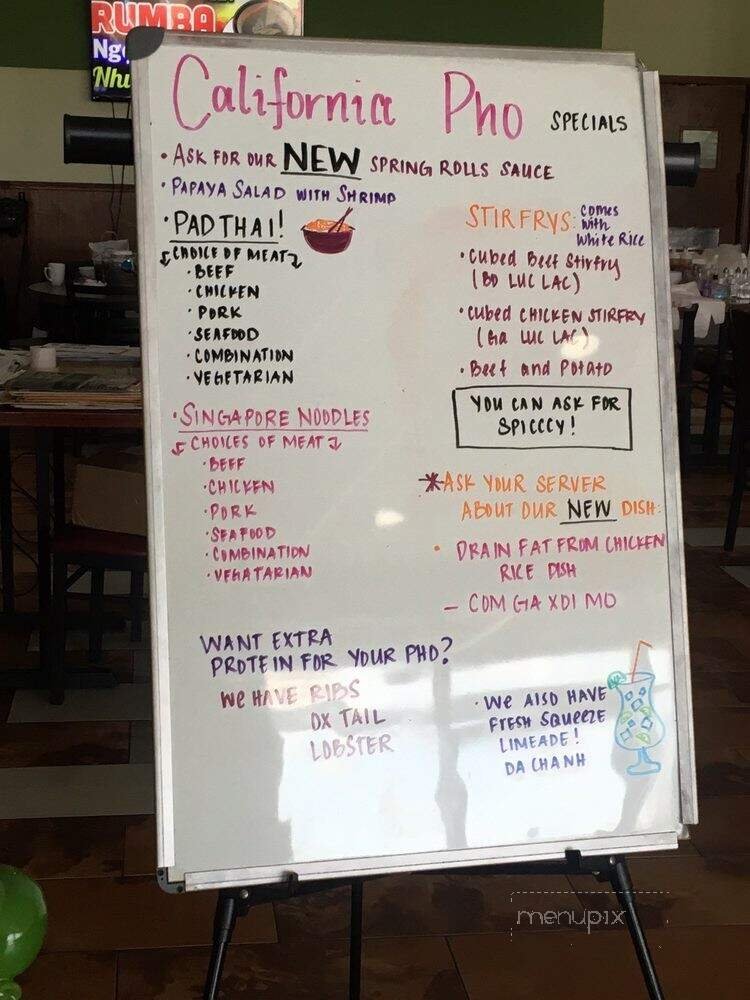 RUMBA
Ng
Nhu
California Pho SPECIALS
• ASK FOR OUR NEW SPRING ROLLS SAUCE
• PAPAYA SALAD WITH SHRIMP
• PAD THAI!
CHOICE OF MEAT
• BEEF
• CHICKEN
• PORK
• SEAFOOD
• COMBINATION
• VEGETARIAN
• SINGAPORE NOODLES
CHOICES OF MEAT
• BEEF
• CHICKEN
• PORK
• SEAFOOD
• COMBINATION
• VEGATARIAN
STIRFRYS: comes
with
White Rice
• Cubed Beef Stirfry
(BO LUC LAC)
• Cubed CHICKEN STIRFRY
(Ga LUC LAC)
• Beef and Potato
YOU CAN ASK FOR
SPICCCY!
*ASK YOUR SERVER
ABOUT OUR NEW DISH:
• DRAIN FAT FROM CHICKEN
RICE DISH
- COM GA XOI MO
WANT EXTRA
PROTEIN FOR YOUR PHO?
We HAVE RIBS
OX TAIL
LOBSTER
• We Also HAVE
FRESH SQUEEZE
LIMEADE!
DA CHANH
menupix